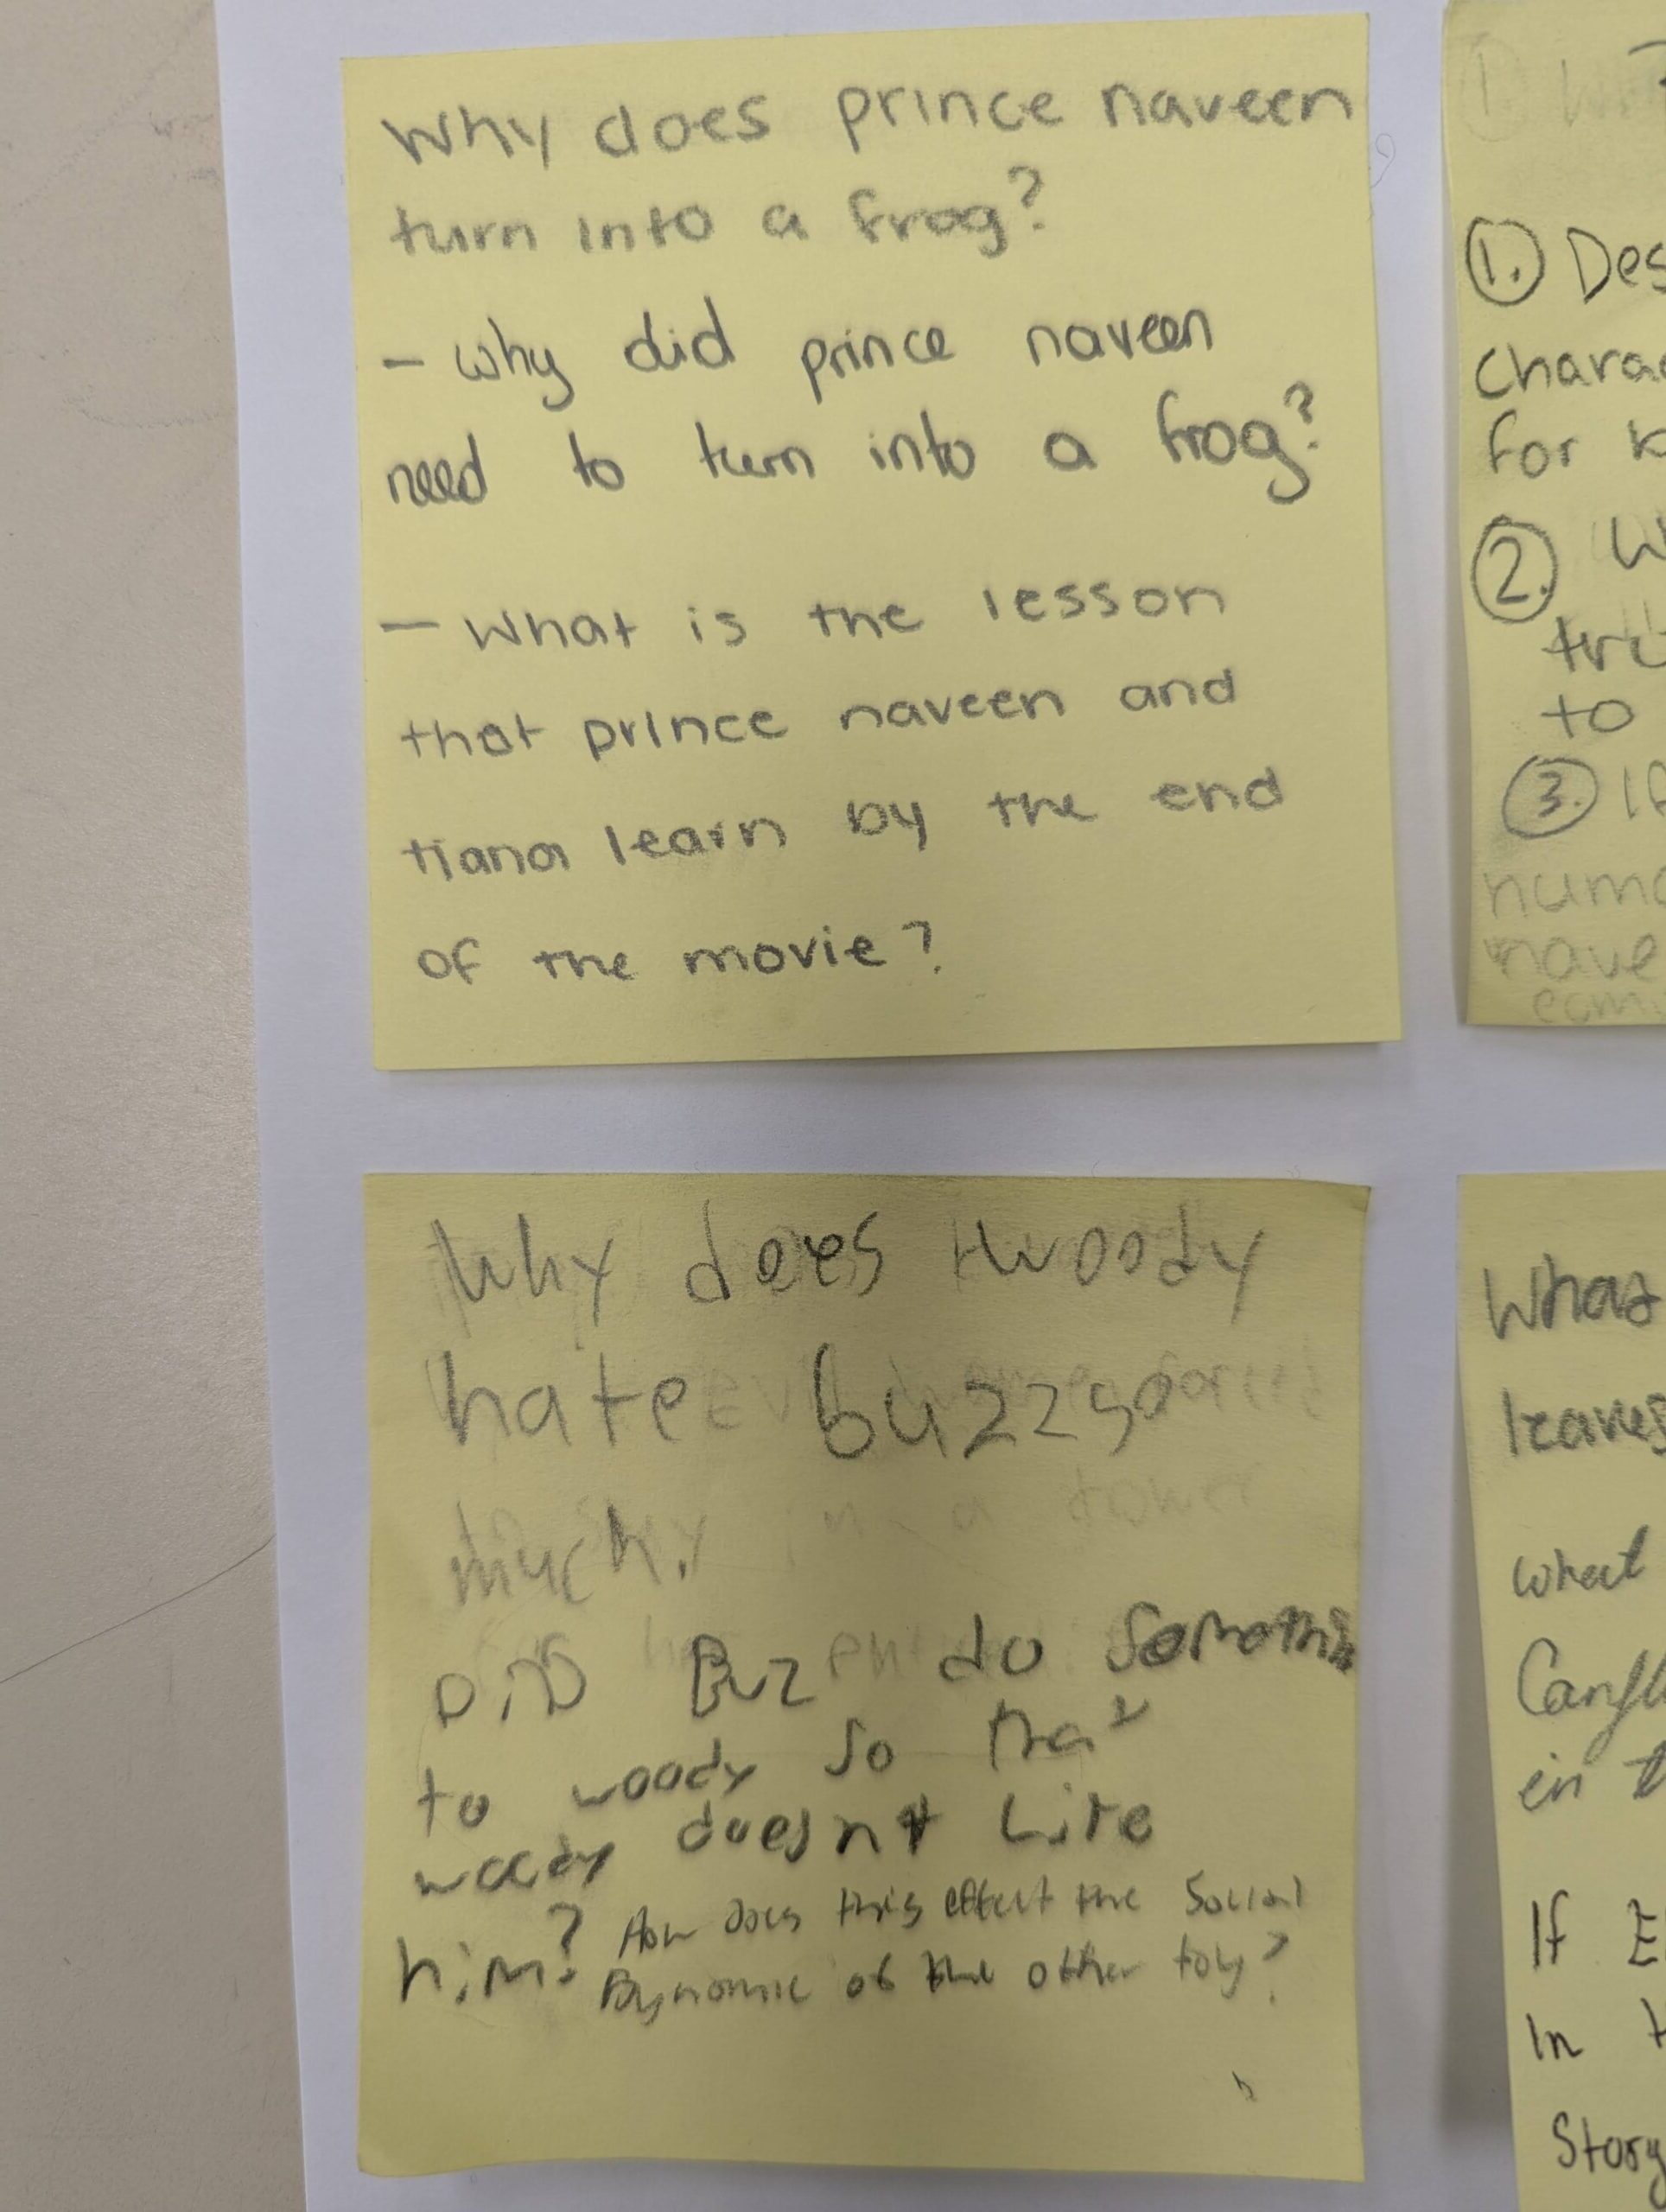 Why does prince naveen
turn into a frog?
- why did prince naveen
need to turn into a frog?
- What is the lesson
that prince naveen and
tiana learn by the end
of the movie?
Why does woody
hate buzz so
much.
DiD Buz do
to woody so
woody doesnt Like
him? How Does this effect the Social
Dynomic of the other toys?
1. Des
Charac
for
2. W
to
3. If
What
leaves
what
Confl
in
If E
In
Story